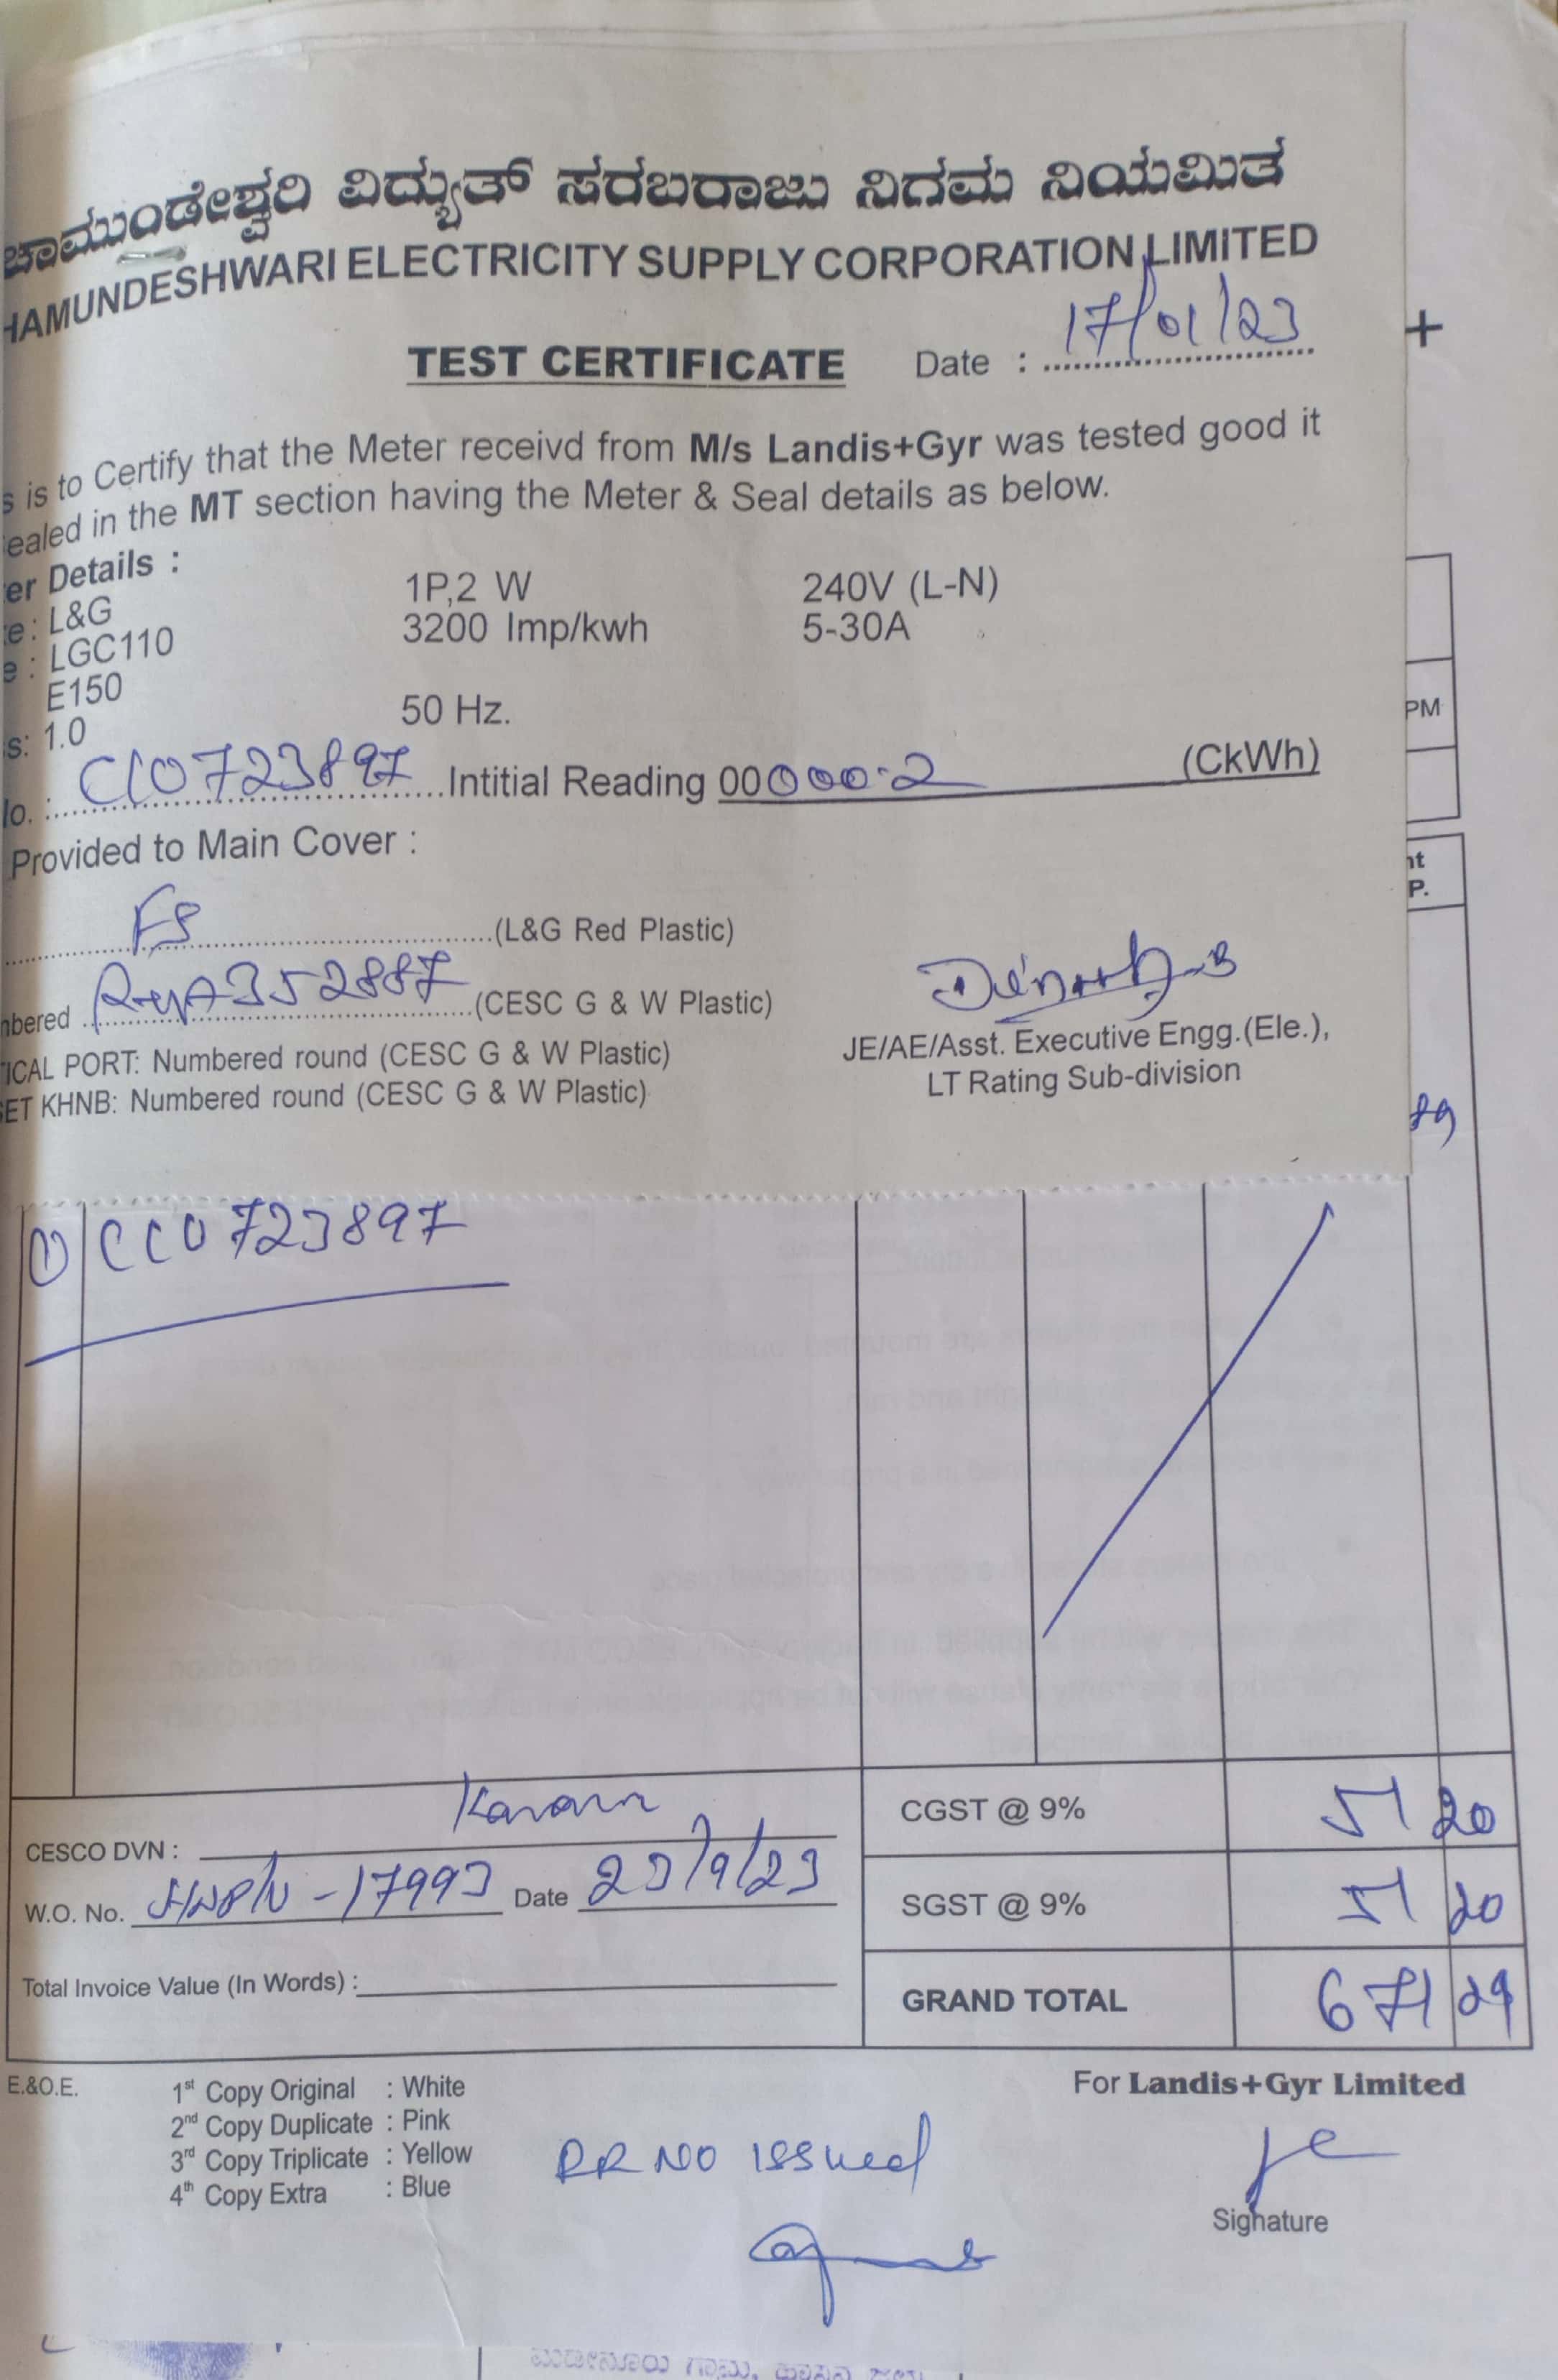 ಚಾಮುಂಡೇಶ್ವರಿ ವಿದ್ಯುತ್ ಸರಬರಾಜು ನಿಗಮ ನಿಯಮಿತ
HAMUNDESHWARI ELECTRICITY SUPPLY CORPORATION LIMITED
TEST CERTIFICATE Date : 17/01/23
+
s is to Certify that the Meter receivd from M/s Landis+Gyr was tested good it
ealed in the MT section having the Meter & Seal details as below.
er Details :
e: L&G 1P,2 W 240V (L-N)
e : LGC110 3200 Imp/kwh 5-30A
E150
s: 1.0 50 Hz.
PM
lo. : CC0723897 Intitial Reading 00000.2 (CkWh)
Provided to Main Cover :
nt
P.
FS (L&G Red Plastic)
nbered 352887 (CESC G & W Plastic)
ICAL PORT: Numbered round (CESC G & W Plastic)
ET KHNB: Numbered round (CESC G & W Plastic)
JE/AE/Asst. Executive Engg.(Ele.),
LT Rating Sub-division
89
1 CC0723897
CESCO DVN :
CGST @ 9% 51 20
W.O. No. -17993 Date 23/9/23
SGST @ 9% 51 20
Total Invoice Value (In Words) :
GRAND TOTAL 671 29
E.&O.E.
1st Copy Original : White
2nd Copy Duplicate : Pink
3rd Copy Triplicate : Yellow
4th Copy Extra : Blue
For Landis+Gyr Limited
RR NO issued
Signature